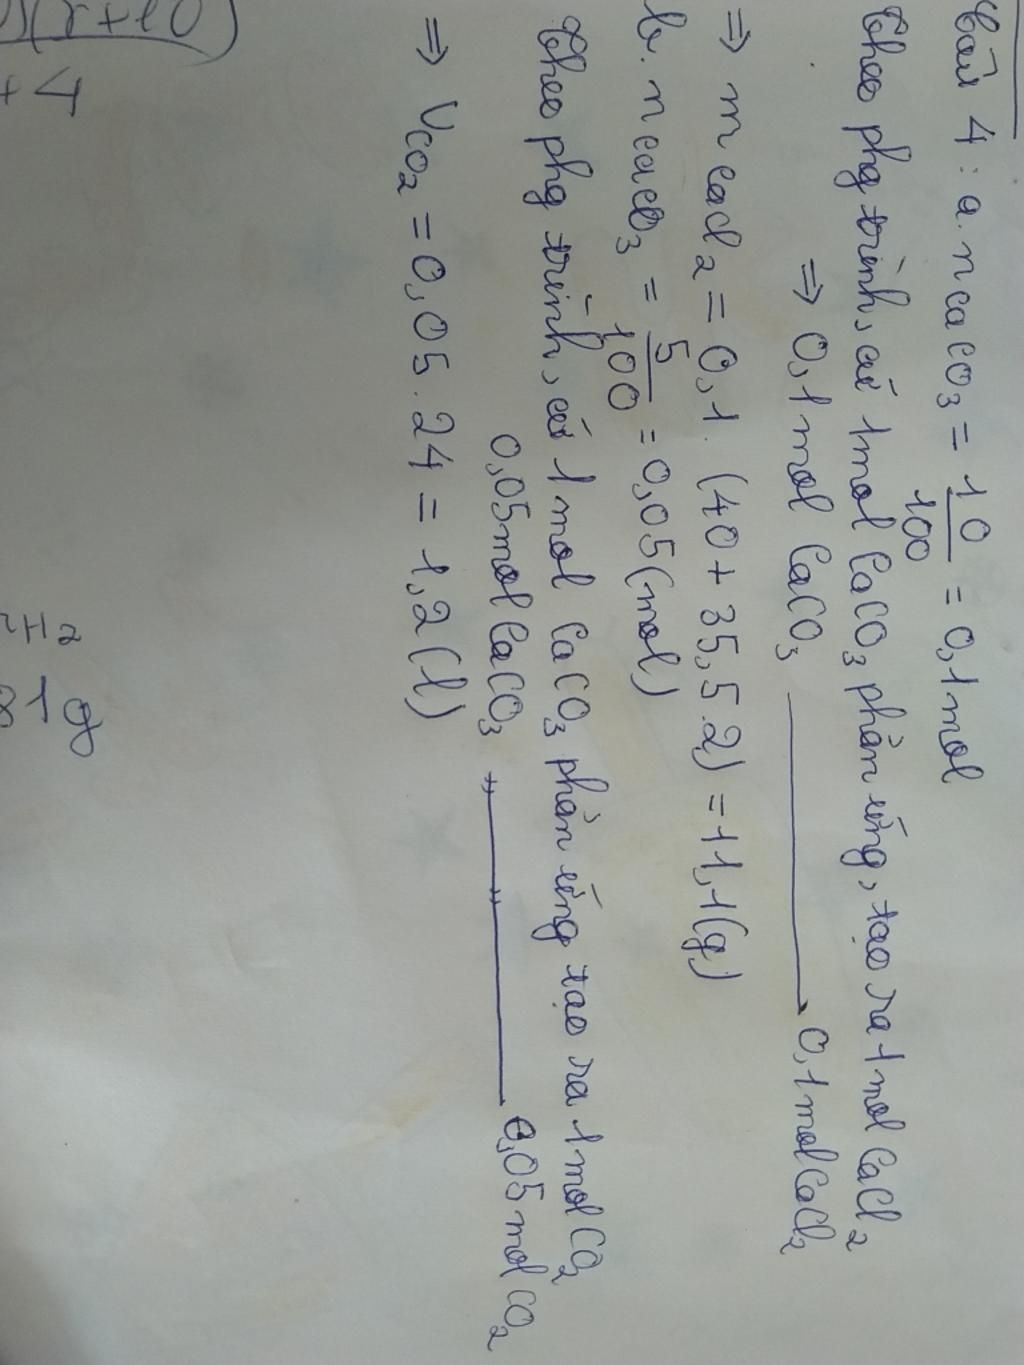 Câu 4: a. nCaCO3 = 10/100 = 0,1 mol
Theo phg trình, cứ 1mol CaCO3 phản ứng, tạo ra 1mol CaCl2
=> 0,1 mol CaCO3 ——— 0,1 mol CaCl2
=> mCaCl2 = 0,1. (40 + 35,5.2) = 11,1(g)
b. nCaCO3 = 5/100 = 0,05(mol)
Theo phg trình, cứ 1 mol CaCO3 phản ứng tạo ra 1 mol CO2
0,05mol CaCO3 —"—"— 0,05 mol CO2
=> VCO2 = 0,05.24 = 1,2(l)
(x+10)
+4
H2
1g